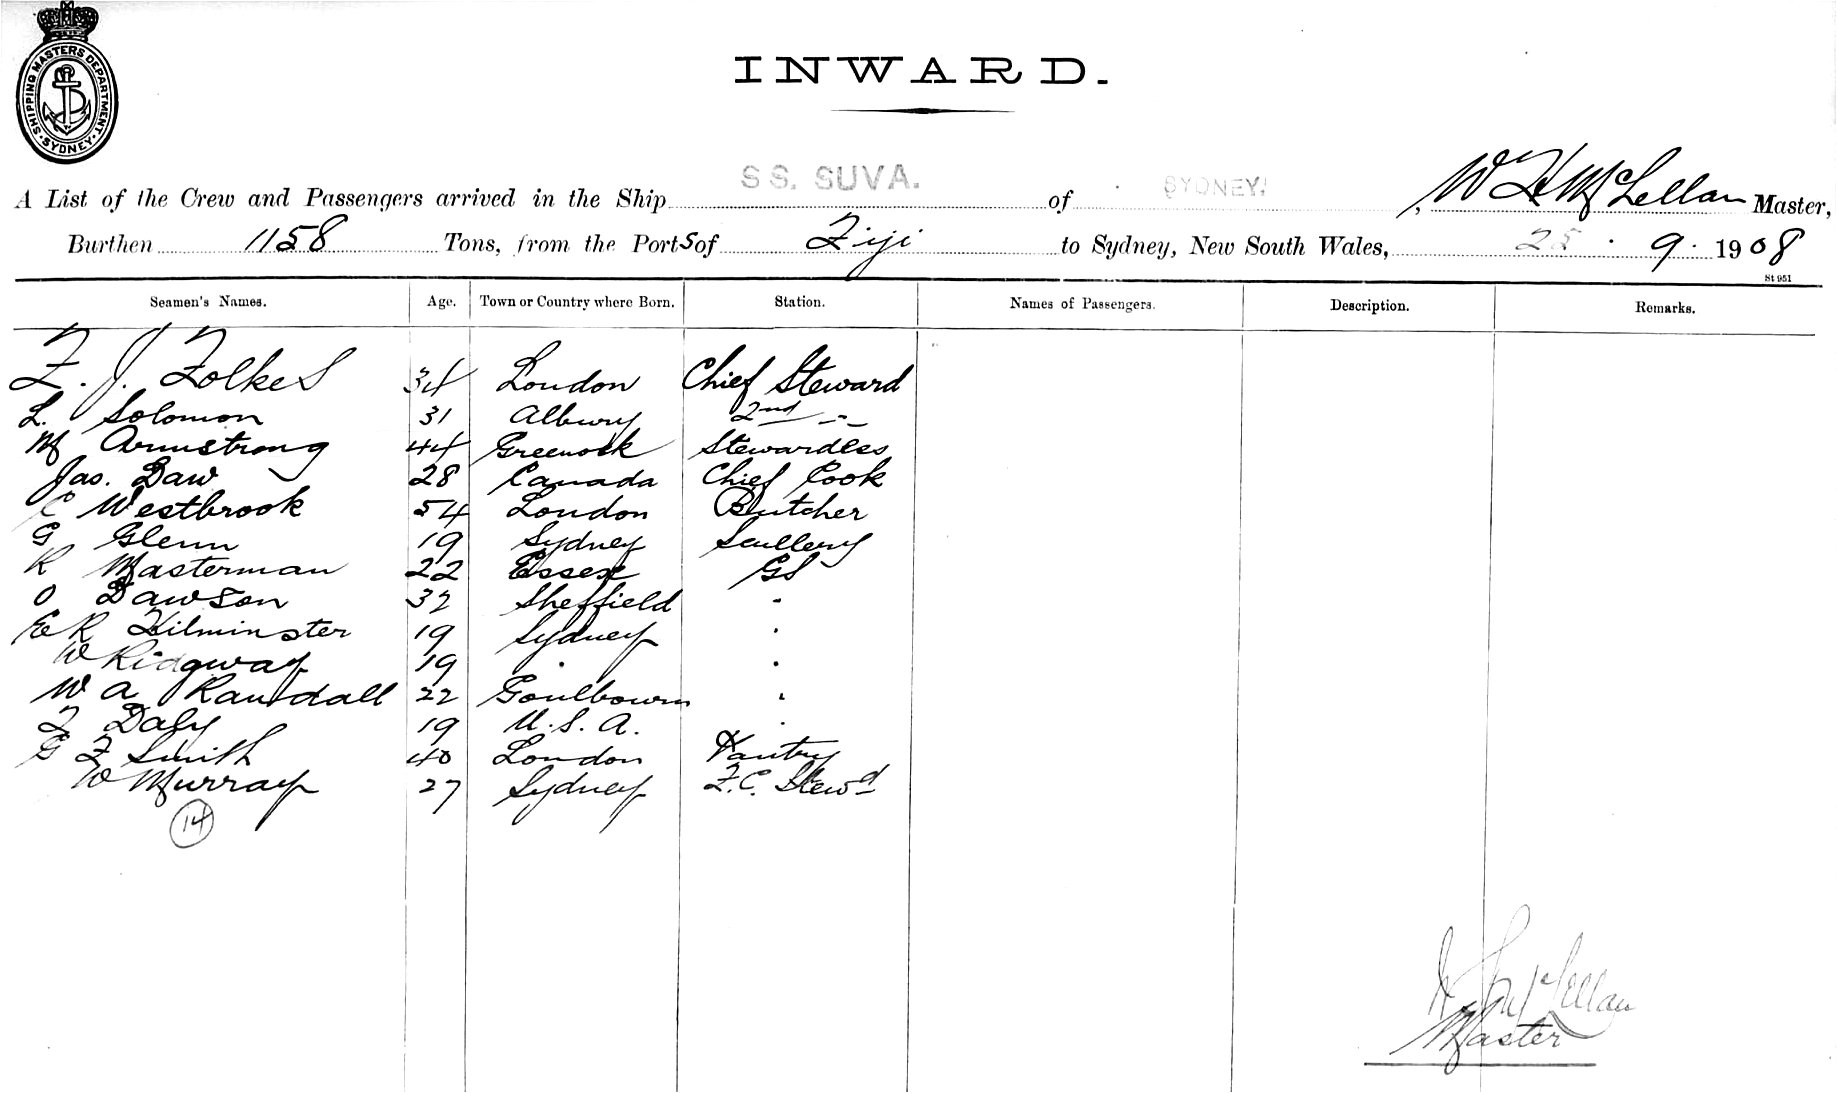 SHIPPING MASTERS DEPARTMENT. SYDNEY
INWARD.
A List of the Crew and Passengers arrived in the Ship SS. SUVA. of SYDNEY. , W H McLellan Master,
Burthen 1158 Tons, from the Ports of Fiji to Sydney, New South Wales, 25. 9. 1908
St 951
Seamen's Names. Age. Town or Country where Born. Station. Names of Passengers. Description. Remarks.
F. J. Folkes 34 London Chief Steward
L. Solomon 31 Albury 2nd "
M Armstrong 44 Greenock Stewardess
Jas. Daw 28 Canada Chief Cook
C Westbrook 54 London Butcher
G Glenn 19 Sydney Scullery
R Masterman 22 Essex GS
O Dawson 32 Sheffield "
E R Kilminster 19 Sydney "
W Ridgway 19 " "
W A Randall 22 Goulbourn "
F Daly 19 U.S.A. "
G F Smith 40 London Pantry
W Murray 27 Sydney F.C. Stewd
14
McLellan
Master